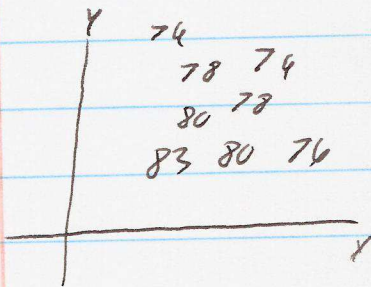 Y
74
78 74
80 78
83 80 76
X